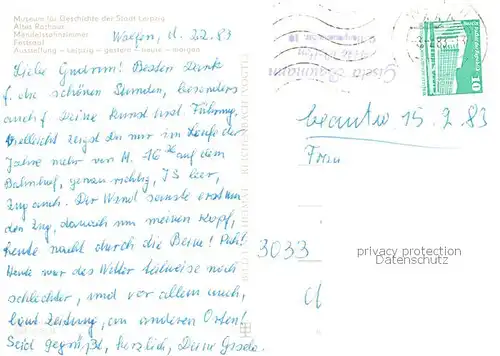 Museum für Geschichte der Stadt Leipzig
Altes Rathaus
Mendelssohnzimmer
Festsaal
Ausstellung – Leipzig – gestern – heute – morgen
d. 2.2.83
Liebe Gudrun! Besten Dank
f. die schönen Stunden, besonders
auch f. Deine Kunst
Vielleicht zeigst Du mir im Laufe der
Jahre mehr von H. 16 auf dem
Bahnhof, genau richtig, IS leer,
Zug auch. Der Wind sauste erst um
den Zug, danach um meinen Kopf,
heute nacht durch die Beine!
Heute war das Wetter teilweise noch
schlechter, und vor allem auch,
laut Zeitung, an anderen Orten!
Seid gegrüßt, herzlich, Deine Gisela.
Gisela Baumann
10
beantw. 15.2.83
Frau
3033
privacy protection
Datenschutz